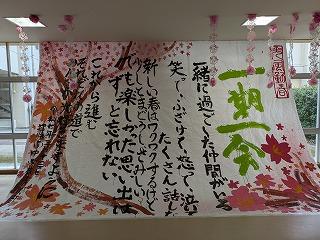 一期一会
一緒に過ごした仲間がいる
笑って、ふざけて、怒って、泣いて
たくさん話した
新しい春はワクワクするけど
でも、楽しかった思い出は
ずっと忘れない
これから進む
それぞれの道で